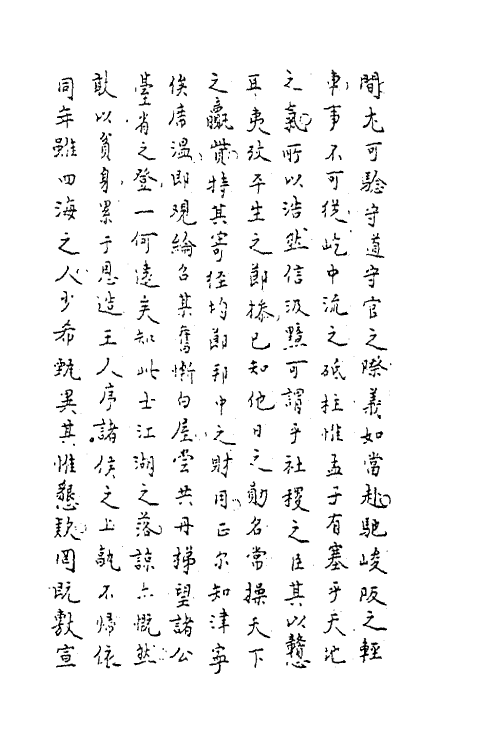 間尤可驗守道守官之際義如當赴馳峻阪之輕
車事不可從屹中流之砥柱惟孟子有塞乎天地
之氣所以浩然信汲黯可謂乎社稷之臣其以戇
耳夷攷平生之節槩已知他日之勛名常操天下
之贏貲特其寄徑均節邦中之財用正尔知津寧
俟席溫即觀綸召其奮慚白屋嘗共丹梯望諸公
臺省之登一何遠矣知此士江湖之落諒亦慨然
敢以貧身累于恩造王人序諸侯之上孰不歸依
同年雖四海之人少希甄異其惟懇款罔既敷宣